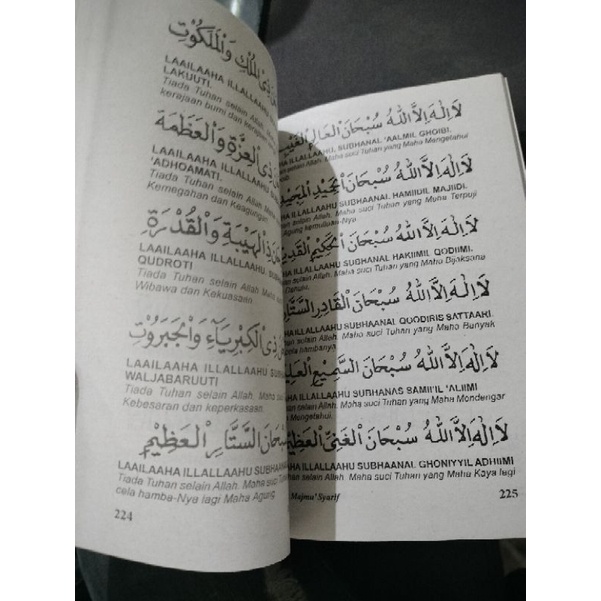 ذِى الْمُلْكِ وَالْمَلَكُوْتِ
LAAILAAHA ILLALLAAHU
LAKUUTI.
Tiada Tuhan selain Allah,
kerajaan bumi dan
ذِى الْعِزَّةِ وَالْعَظَمَةِ
LAAILAAHA ILLALLAAHU
'ADHOAMATI.
Tiada Tuhan selain Allah. Maha
Kemegahan dan Keagungan
ذِى الْهَيْبَةِ وَالْقُدْرَةِ
LAAILAAHA ILLALLAAHU SU
QUDROTI
Tiada Tuhan selain Allah Maha su
Wibawa dan Kekuasaan
ذِى الْكِبْرِيَآءِ وَالْجَبَرُوْتِ
LAAILAAHA ILLALLAAHU SUBH
WALJABARUUTI
Tiada Tuhan selain Allah. Maha suc
Kebesaran dan keperkasaan.
سُبْحَانَ السَّتَّارِ الْعَظِيْمِ
LAAILAAHA ILLALLAAHU SUBHAANA
Tiada Tuhan selain Allah. Maha suci Tuhan
cela hamba-Nya lagi Maha Agung
224
لَا اِلٰهَ اِلَّا اللهُ سُبْحَانَ الْعَالِمِ الْغَيْبِ
HA ILLALLAAHU SUBHAANAL 'AALMIL GHOIBI.
an selain Allah. Maha suci Tuhan yang Maha Mengetahui
لَا اِلٰهَ اِلَّا اللهُ سُبْحَانَ
HA ILLALLAAHU SUBHAANAL HAMIIUL MAJIIDI.
han selain Allah. Maha suci Tuhan yang Maha Terpuji
Agung kermitulan-Nya.
لَا اِلٰهَ اِلَّا اللهُ سُبْحَانَ الْحَكِيْمِ الْقَدِيْمِ
HA ILLALLAAHU SUBHAANAL HAKIIMIL QODIIMI.
an selain Allah. Maha suci Tuhan yang Maha Bijaksana
لَا اِلٰهَ اِلَّا اللهُ سُبْحَانَ الْقَادِرِ السَّتَّارِ
HA ILLALLAAHU SUBHAANAL QUODIRIS SATTAARI.
n selain Allah. Maha suci Tuhan yang Maha Banyak
hambanya.
لَا اِلٰهَ اِلَّا اللهُ سُبْحَانَ السَّمِيْعِ الْعَلِيْمِ
ILLALLAAHU SUBHAANAS SAMII'IL 'ALIIMI
selain Allah. Maha suci Tuhan yang Maha Mendengar
Mengetahui.
لَا اِلٰهَ اِلَّا اللهُ سُبْحَانَ الْغَنِيِّ الْعَظِيْمِ
ILLALLAAHU SUBHAANAL GHONIYYIL ADHIIMI
selain Allah. Maha suci Tuhan yang Maha Kaya lagi
Majmu' Syarif
225